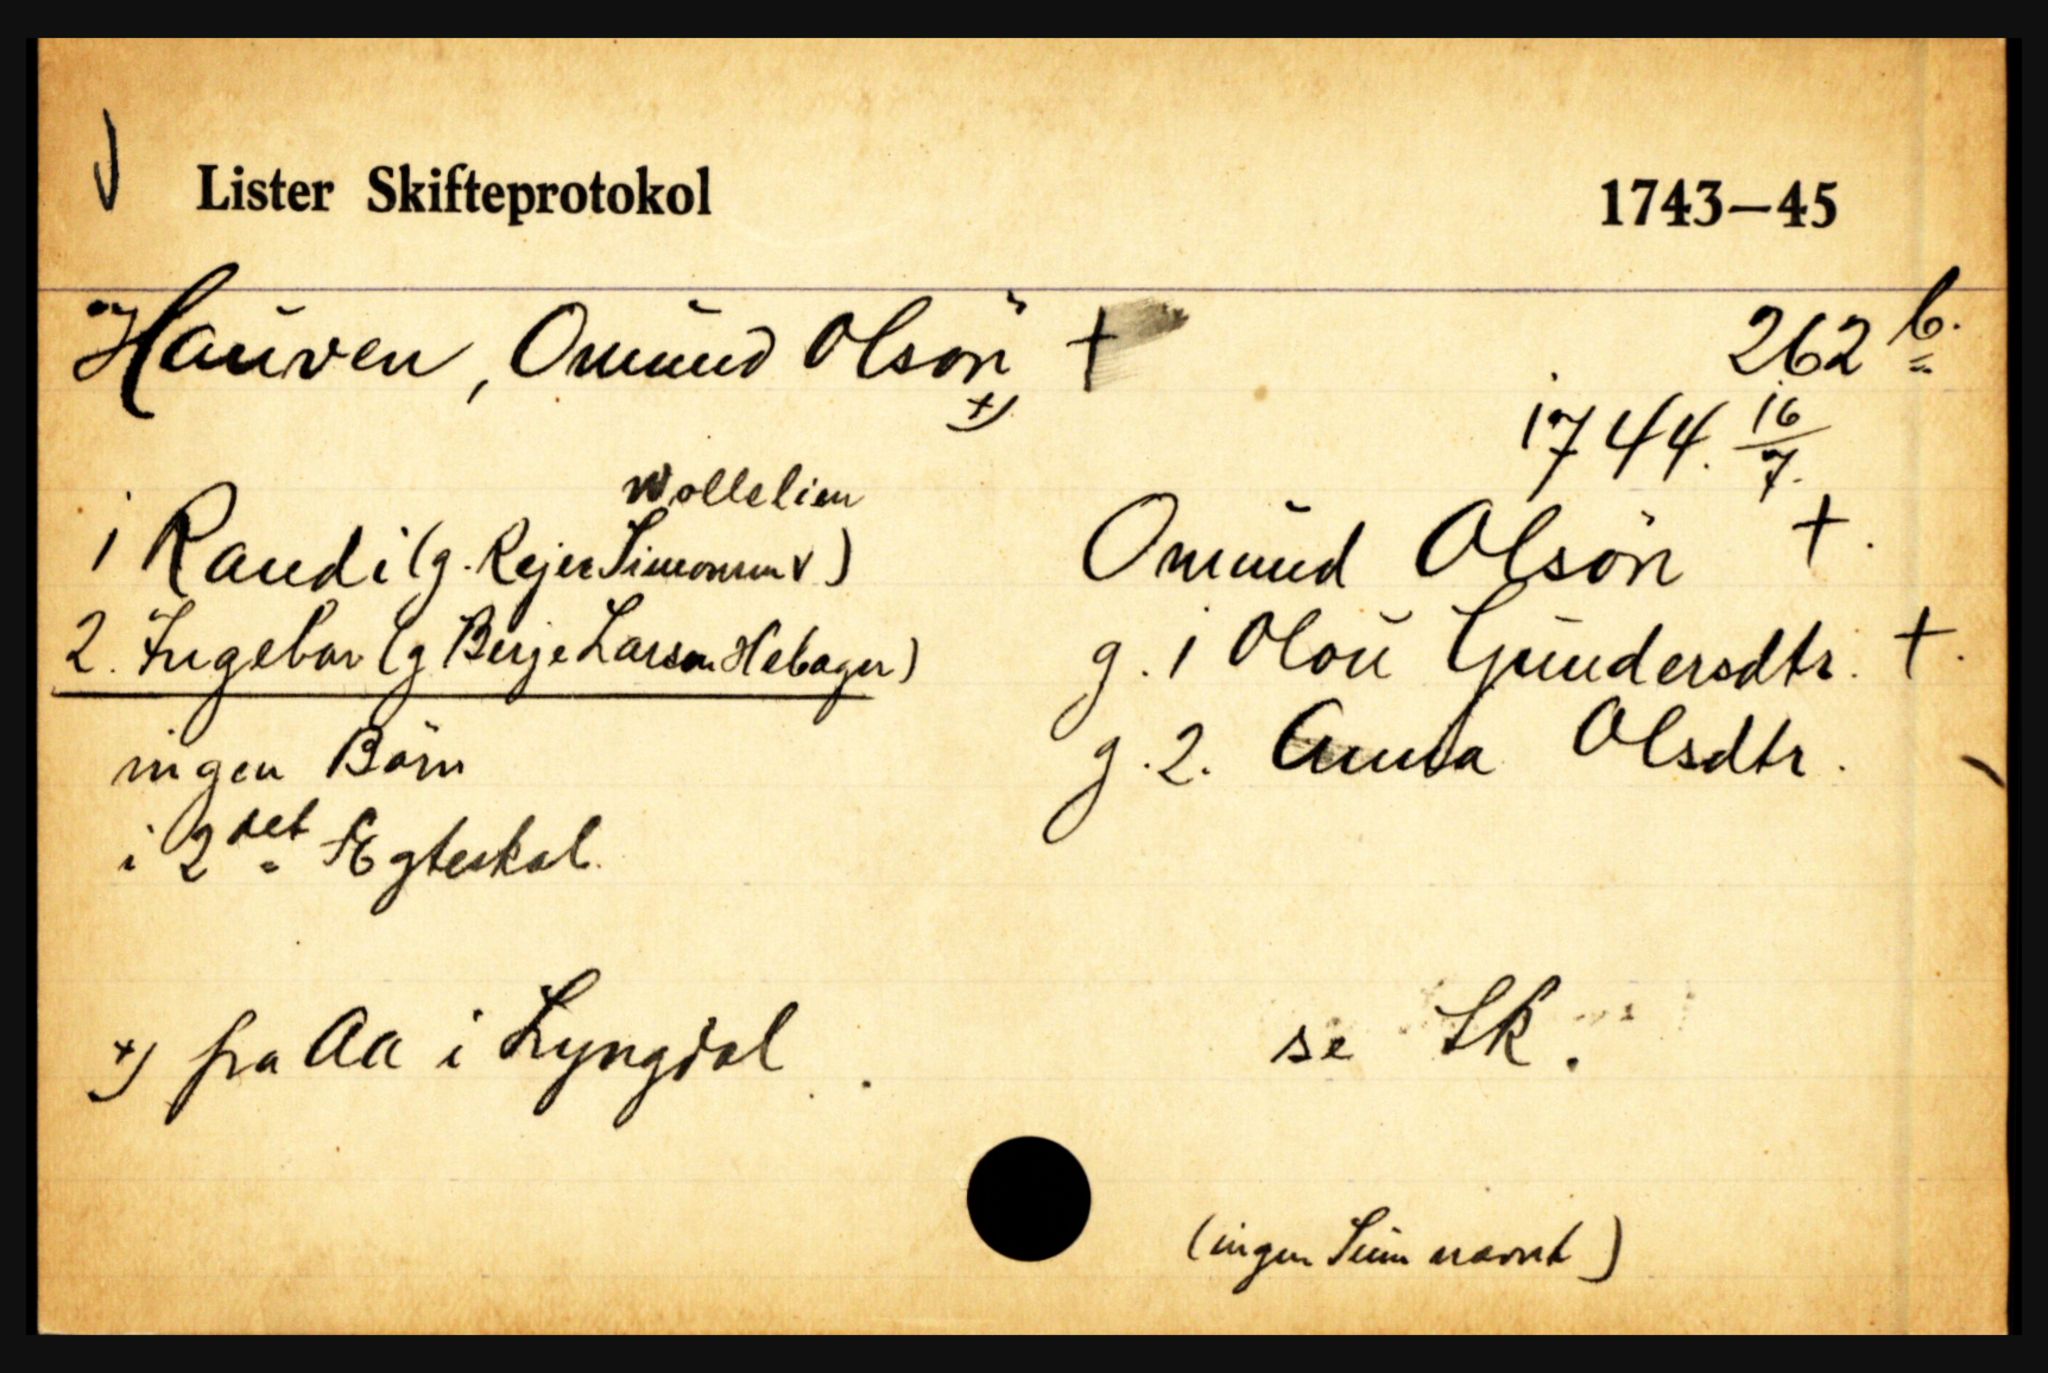 Lister Skifteprotokol 1743—45
Hauven, Omund Olsön + 262 b.
+) 1744. 16/7.
Wollelien
1 Randi (g. Rejer Simonsen V.) Omund Olsön +.
2. Ingebor (g Berje Larsen Hebager) g. 1 Olou Gundersdtr. +.
ingen Börn g. 2. Anna Olsdtr.
i 2det Ægteskab.
+) fra Aa i Lyngdal se Sk.
(ingen Sum nævnt)